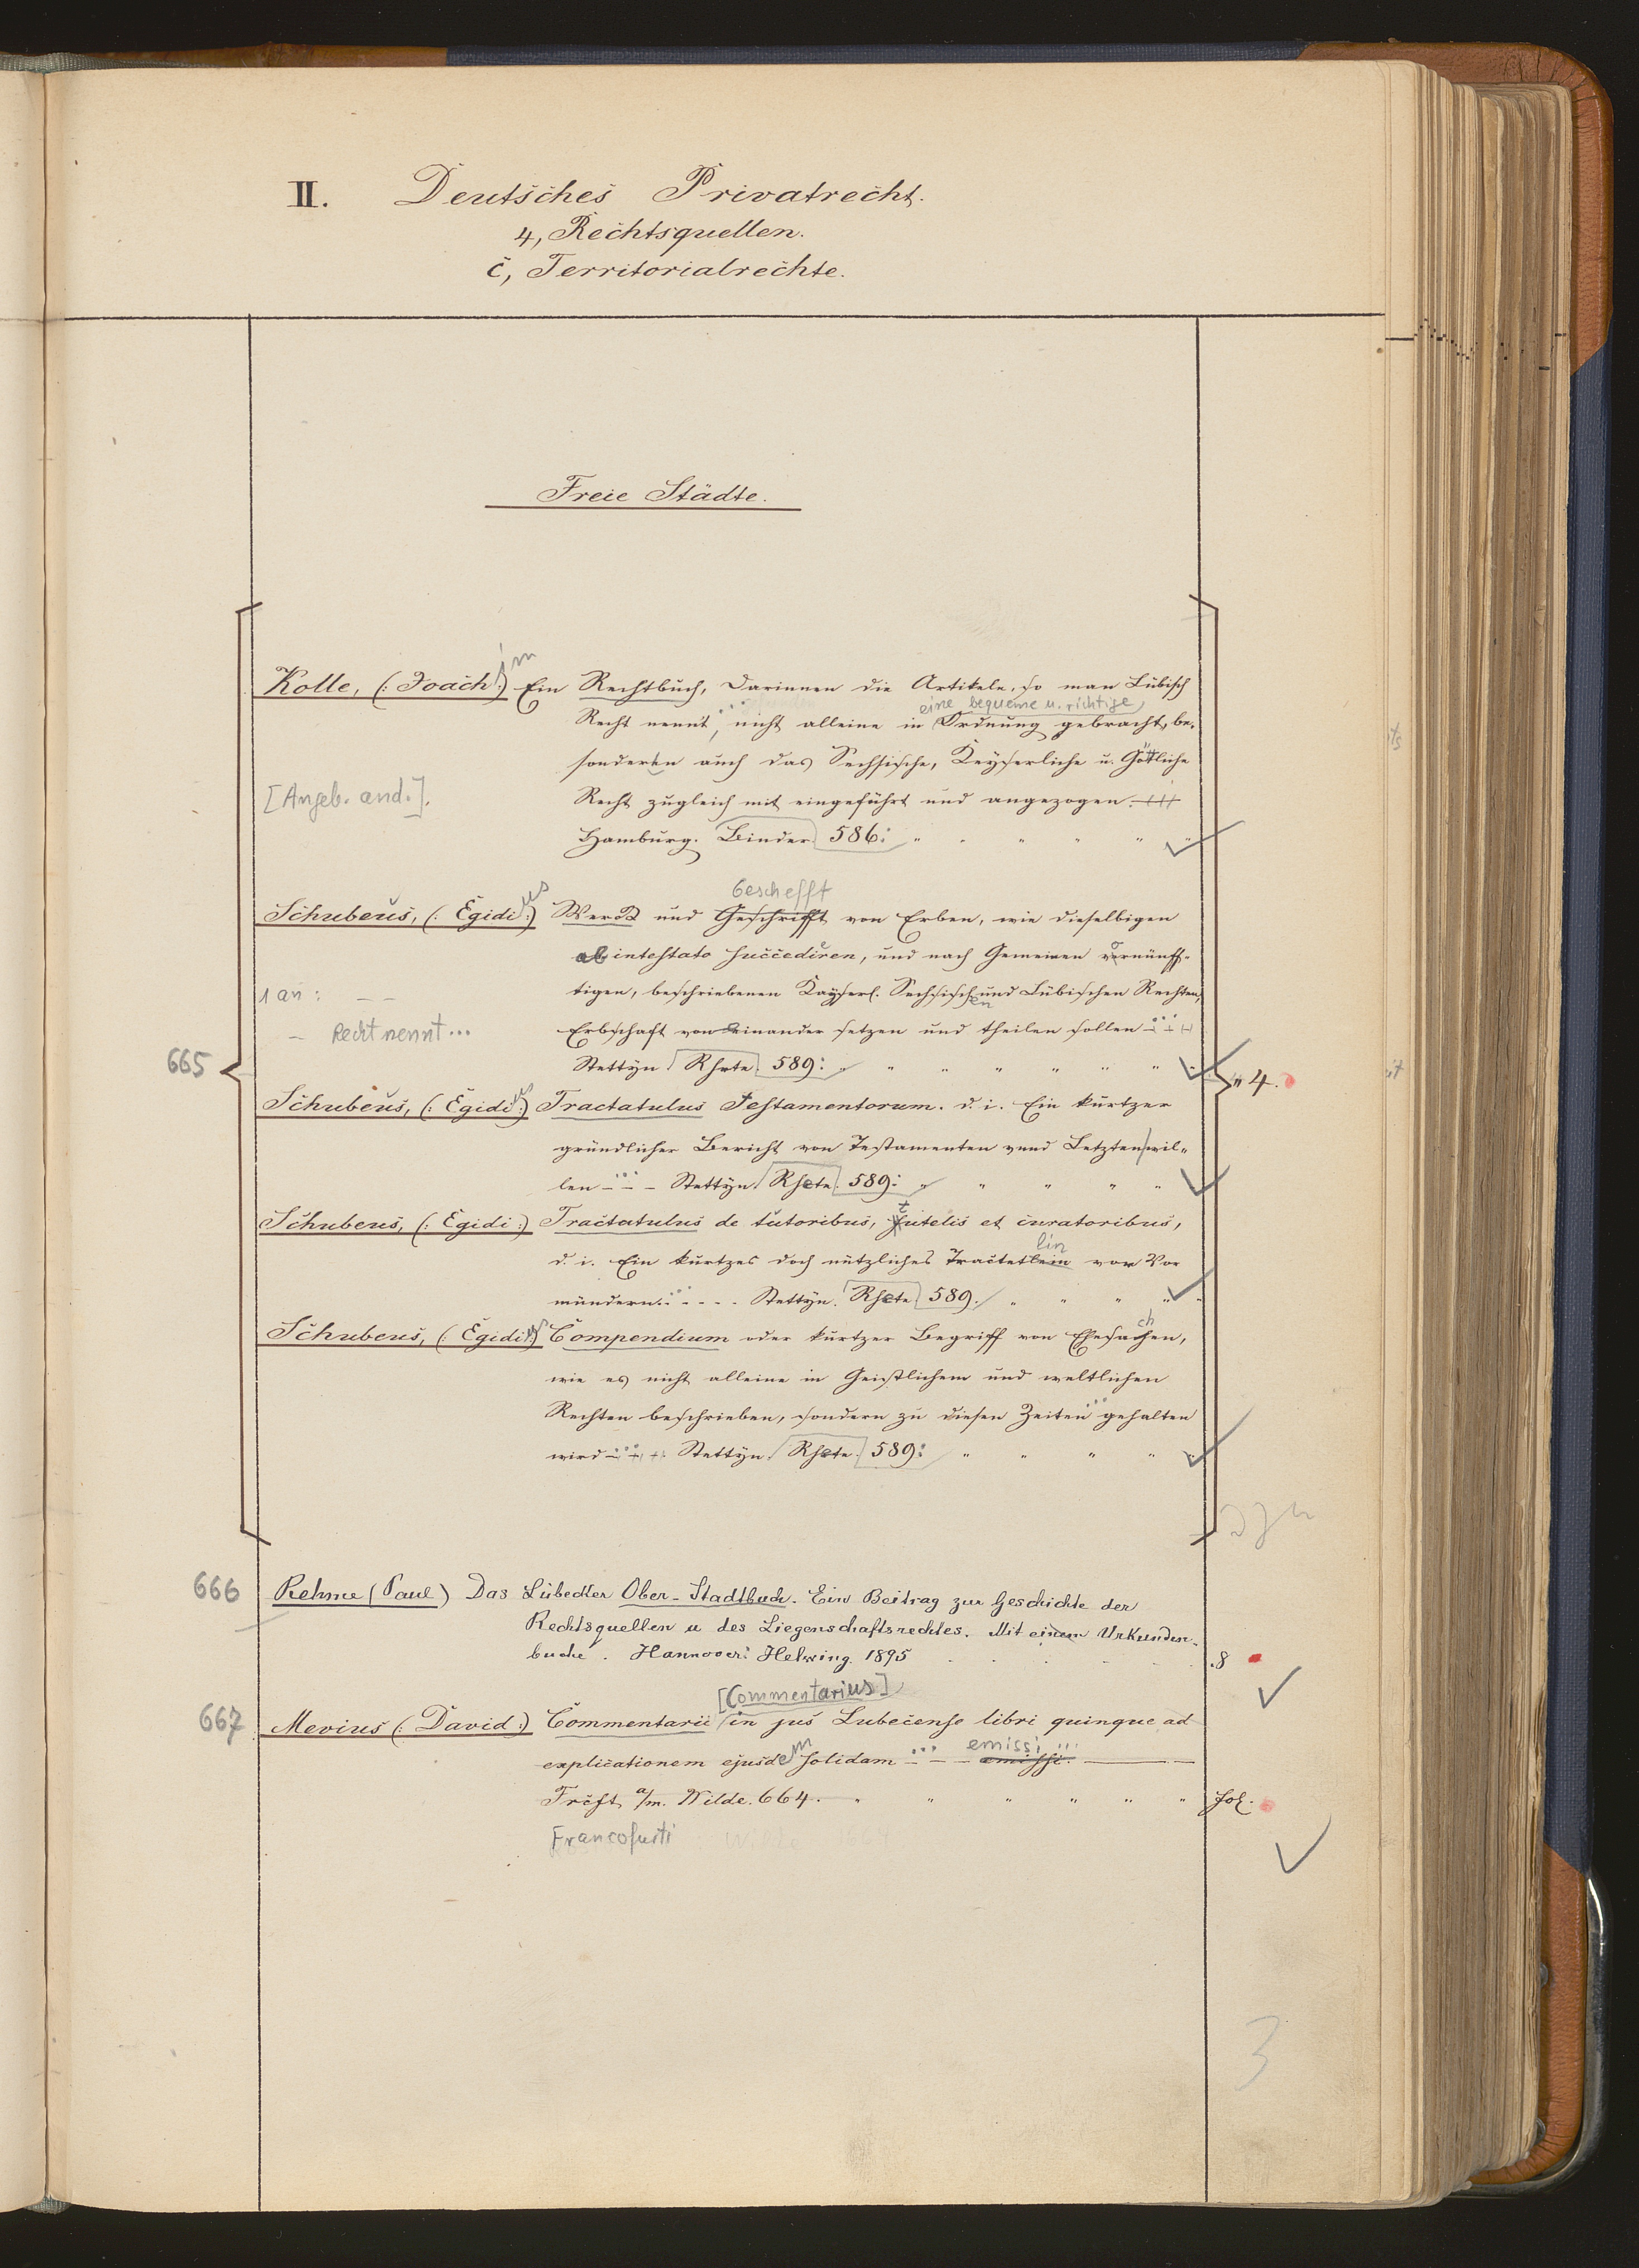 II. Deutsches Privatrecht.
4, Rechtsquellen.
c, Territorialrechte.
Freie Städte.
Kolle, (: Joach :) im Ein Rechtbuch, darinnen die Artikele, so man Lübisch
eine bequeme u. richtige
Recht nennt, nicht alleine in Ordnung gebracht, be-
sonderen auch das Sechsische, Keyserliche u. Göttliche
[Angeb. and.].
Recht zugleich mit eingeführt und angezogen.
Hamburg. Binder 586:
Geschefft
Schubeus, (: Egidi :) us Werck und Geschrifft von Erben, wie dieselbigen
ab intestato succediren, und nach Gemeinen vernünff-
1 an: – –
tigen, beschriebenen Kayserl. Sechsischen und Lübischen Rechten,
– Recht nennt...
Erbschaft von einander setzen und theilen sollen
665
Stettyn Rhete 589:
" 4.
Schubeus, (: Egidi :) us Tractatulus Testamentorum. d. i. Ein kurtzer
gründlicher Bericht von Testamenten vnnd Letzten wil-
len - - - Stettyn Rhete 589:
Schubeus, (: Egidi :) Tractatulus de tutoribus, tutelis et curatoribus,
lin
d. i. Ein kurtzes doch nützliches Tractetlein von Vor
mündern. - - - - Stettyn. Rhete 589.
Schubeus, (: Egidi :) us Compendium oder kurtzer Begriff von Ehesachen,
wie es nicht alleine in Geistlichem und weltlichen
Rechten beschrieben, sondern zu diesen Zeiten gehalten
wird - - - Stettyn. Rhete. 589:
666 Rehme (Paul) Das Lübecker Ober-Stadtbuch. Ein Beitrag zur Geschichte der
Rechtsquellen u des Liegenschaftsrechtes. Mit einem Urkunden-
buche. Hannover: Helwing. 1895 8
[Commentarius]
667 Mevius (: David :) Commentarii in jus Lubecense libri quinque ad
explicationem ejusdem solidam ... emissi ... emissi.
Frcft a/m. Wilde. 664. fol.
Francofurti Wilde 1664
3